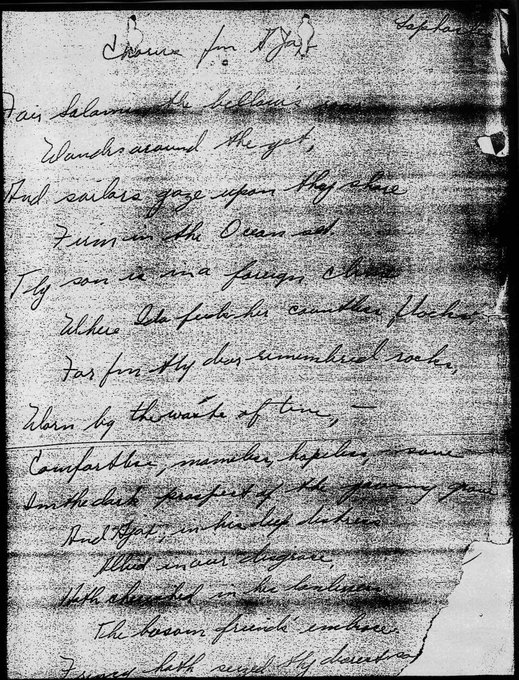 Chorus from Ajax
Fair Salamis the billow's roar
Wanders around thee yet,
And sailors gaze upon thy shore
Firm in the Ocean set.
Thy son is in a foreign clime
Where Ida feeds her countless flocks,
Far from thy dear remembered rocks,
Worn by the waste of time, —
Comfortless, nameless, hopeless, save
In the dark prospect of the yawning grave
And Ajax, in his deep distress
Allied in our disgrace,
Hath cherished in his loneliness
The bosom friends' embrace.
Frenzy hath seized thy dearest so